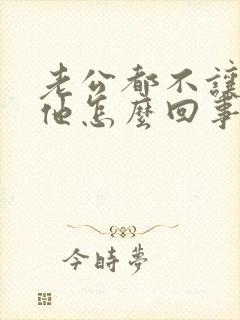 老公都不讓
他怎麼回事
今時夢